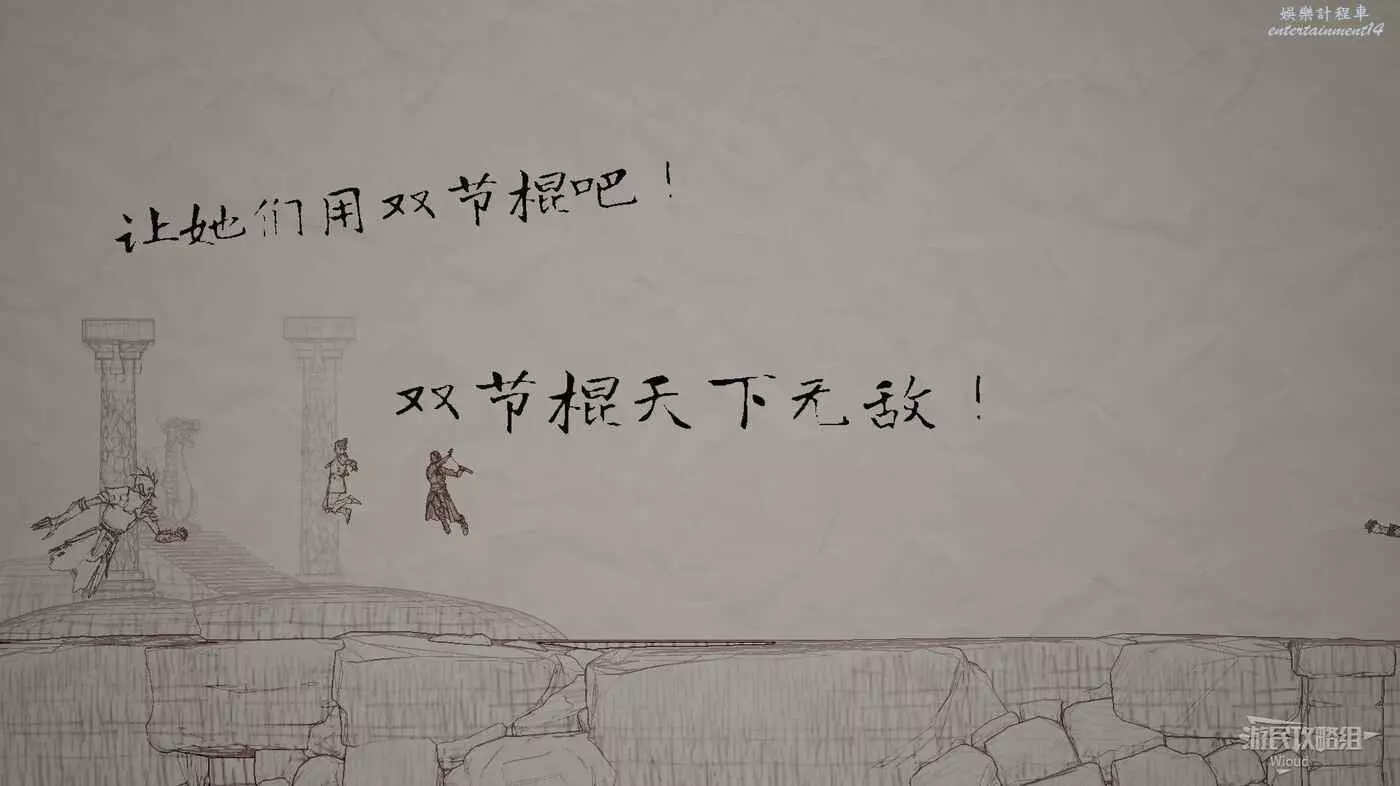 娛樂計程車
entertainment14
让她们用双节棍吧！
双节棍天下无敌！
游民攻略组
Wioud